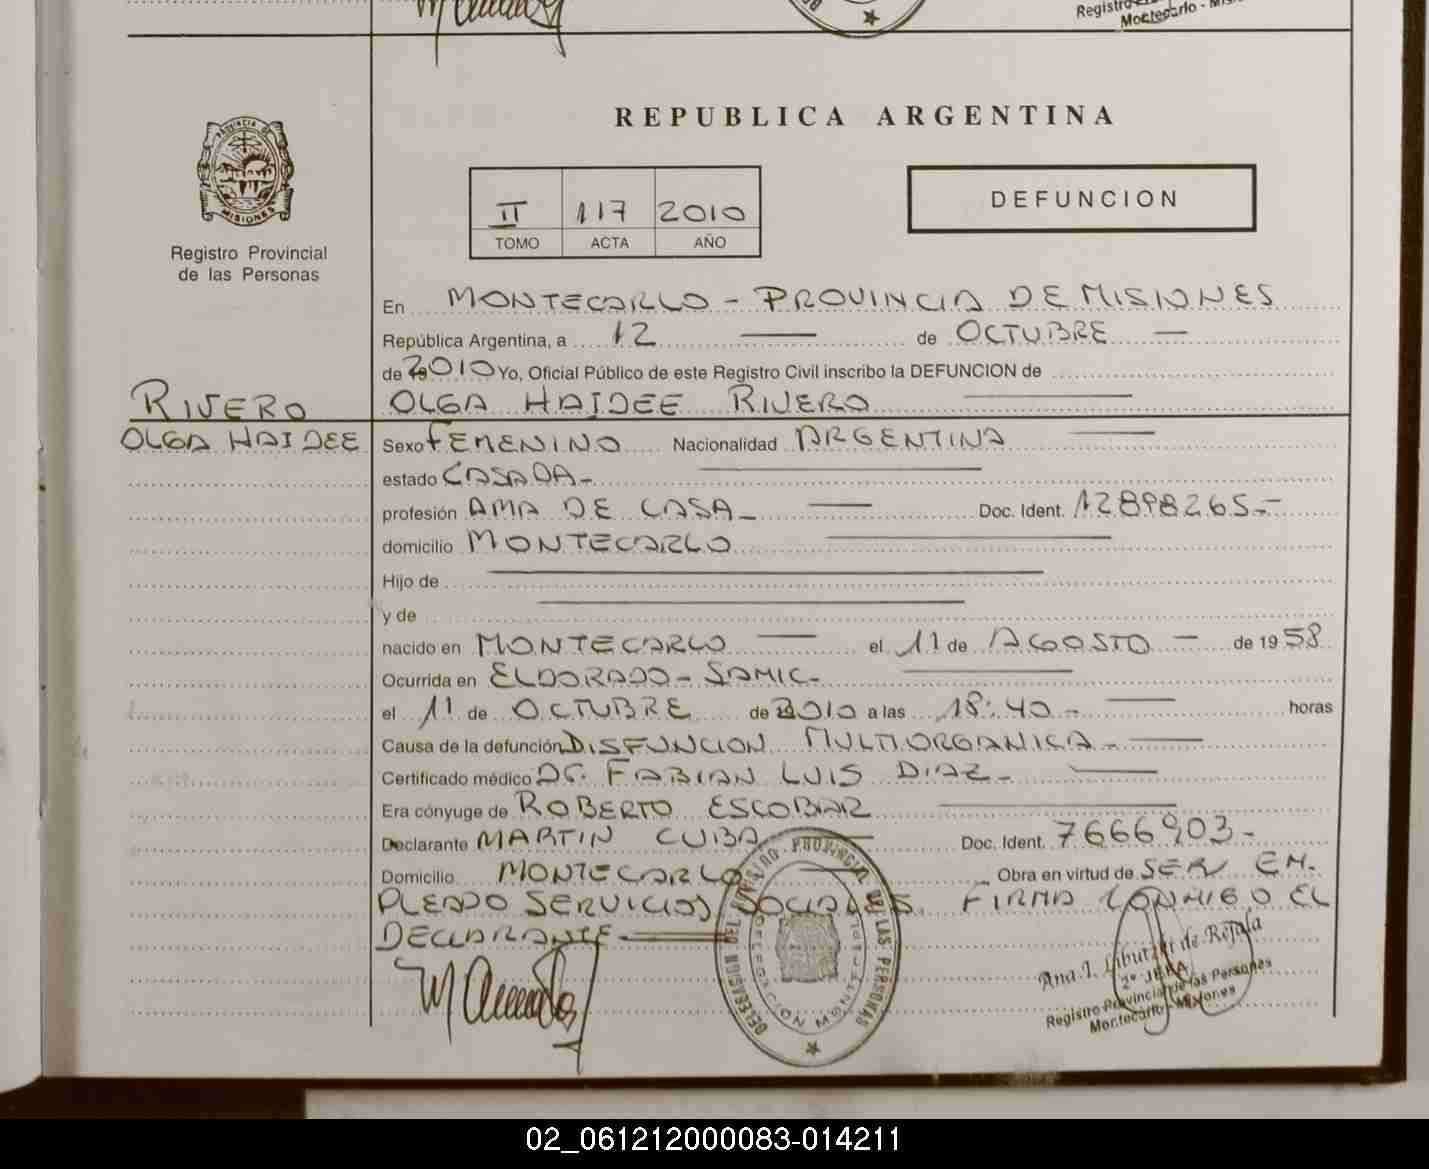 Registro
Montecarlo - Mis
REPUBLICA ARGENTINA
PROVINCIA DE
MISIONES
Registro Provincial
de las Personas
II 117 2010
TOMO ACTA AÑO
DEFUNCION
En MONTECARLO - PROVINCIA DE MISIONES
República Argentina, a 12 de OCTUBRE
de 2010 Yo, Oficial Público de este Registro Civil inscribo la DEFUNCION de
RIVERO
OLGA HAIDEE RIVERO
OLGA HAIDEE
Sexo FEMENINO Nacionalidad ARGENTINA
estado CASADA-
profesión AMA DE CASA- Doc. Ident. 12898265.-
domicilio MONTECARLO
Hijo de
y de
nacido en MONTECARLO el 11 de AGOSTO - de 1958
Ocurrida en ELDORADO - SAMIC-
el 11 de OCTUBRE de 2010 a las 18:40.- horas
Causa de la defunción DISFUNCION MULTIORGANICA-
Certificado médico Dr. FABIAN LUIS DIAZ-
Era cónyuge de ROBERTO ESCOBAR
Declarante MARTIN CUBA Doc. Ident. 7666903-
Domicilio MONTECARLO Obra en virtud de SER EM-
PLEADO SERVICIOS SOCIALES. FIRMA CONMIGO EL
DECLARANTE
DELEGACION DEL REGISTRO PROVINCIAL DE LAS PERSONAS
Ana I. de Rejala
2º JEFA
Registro Provincial de las Personas
Montecarlo - Misiones
02_061212000083-014211